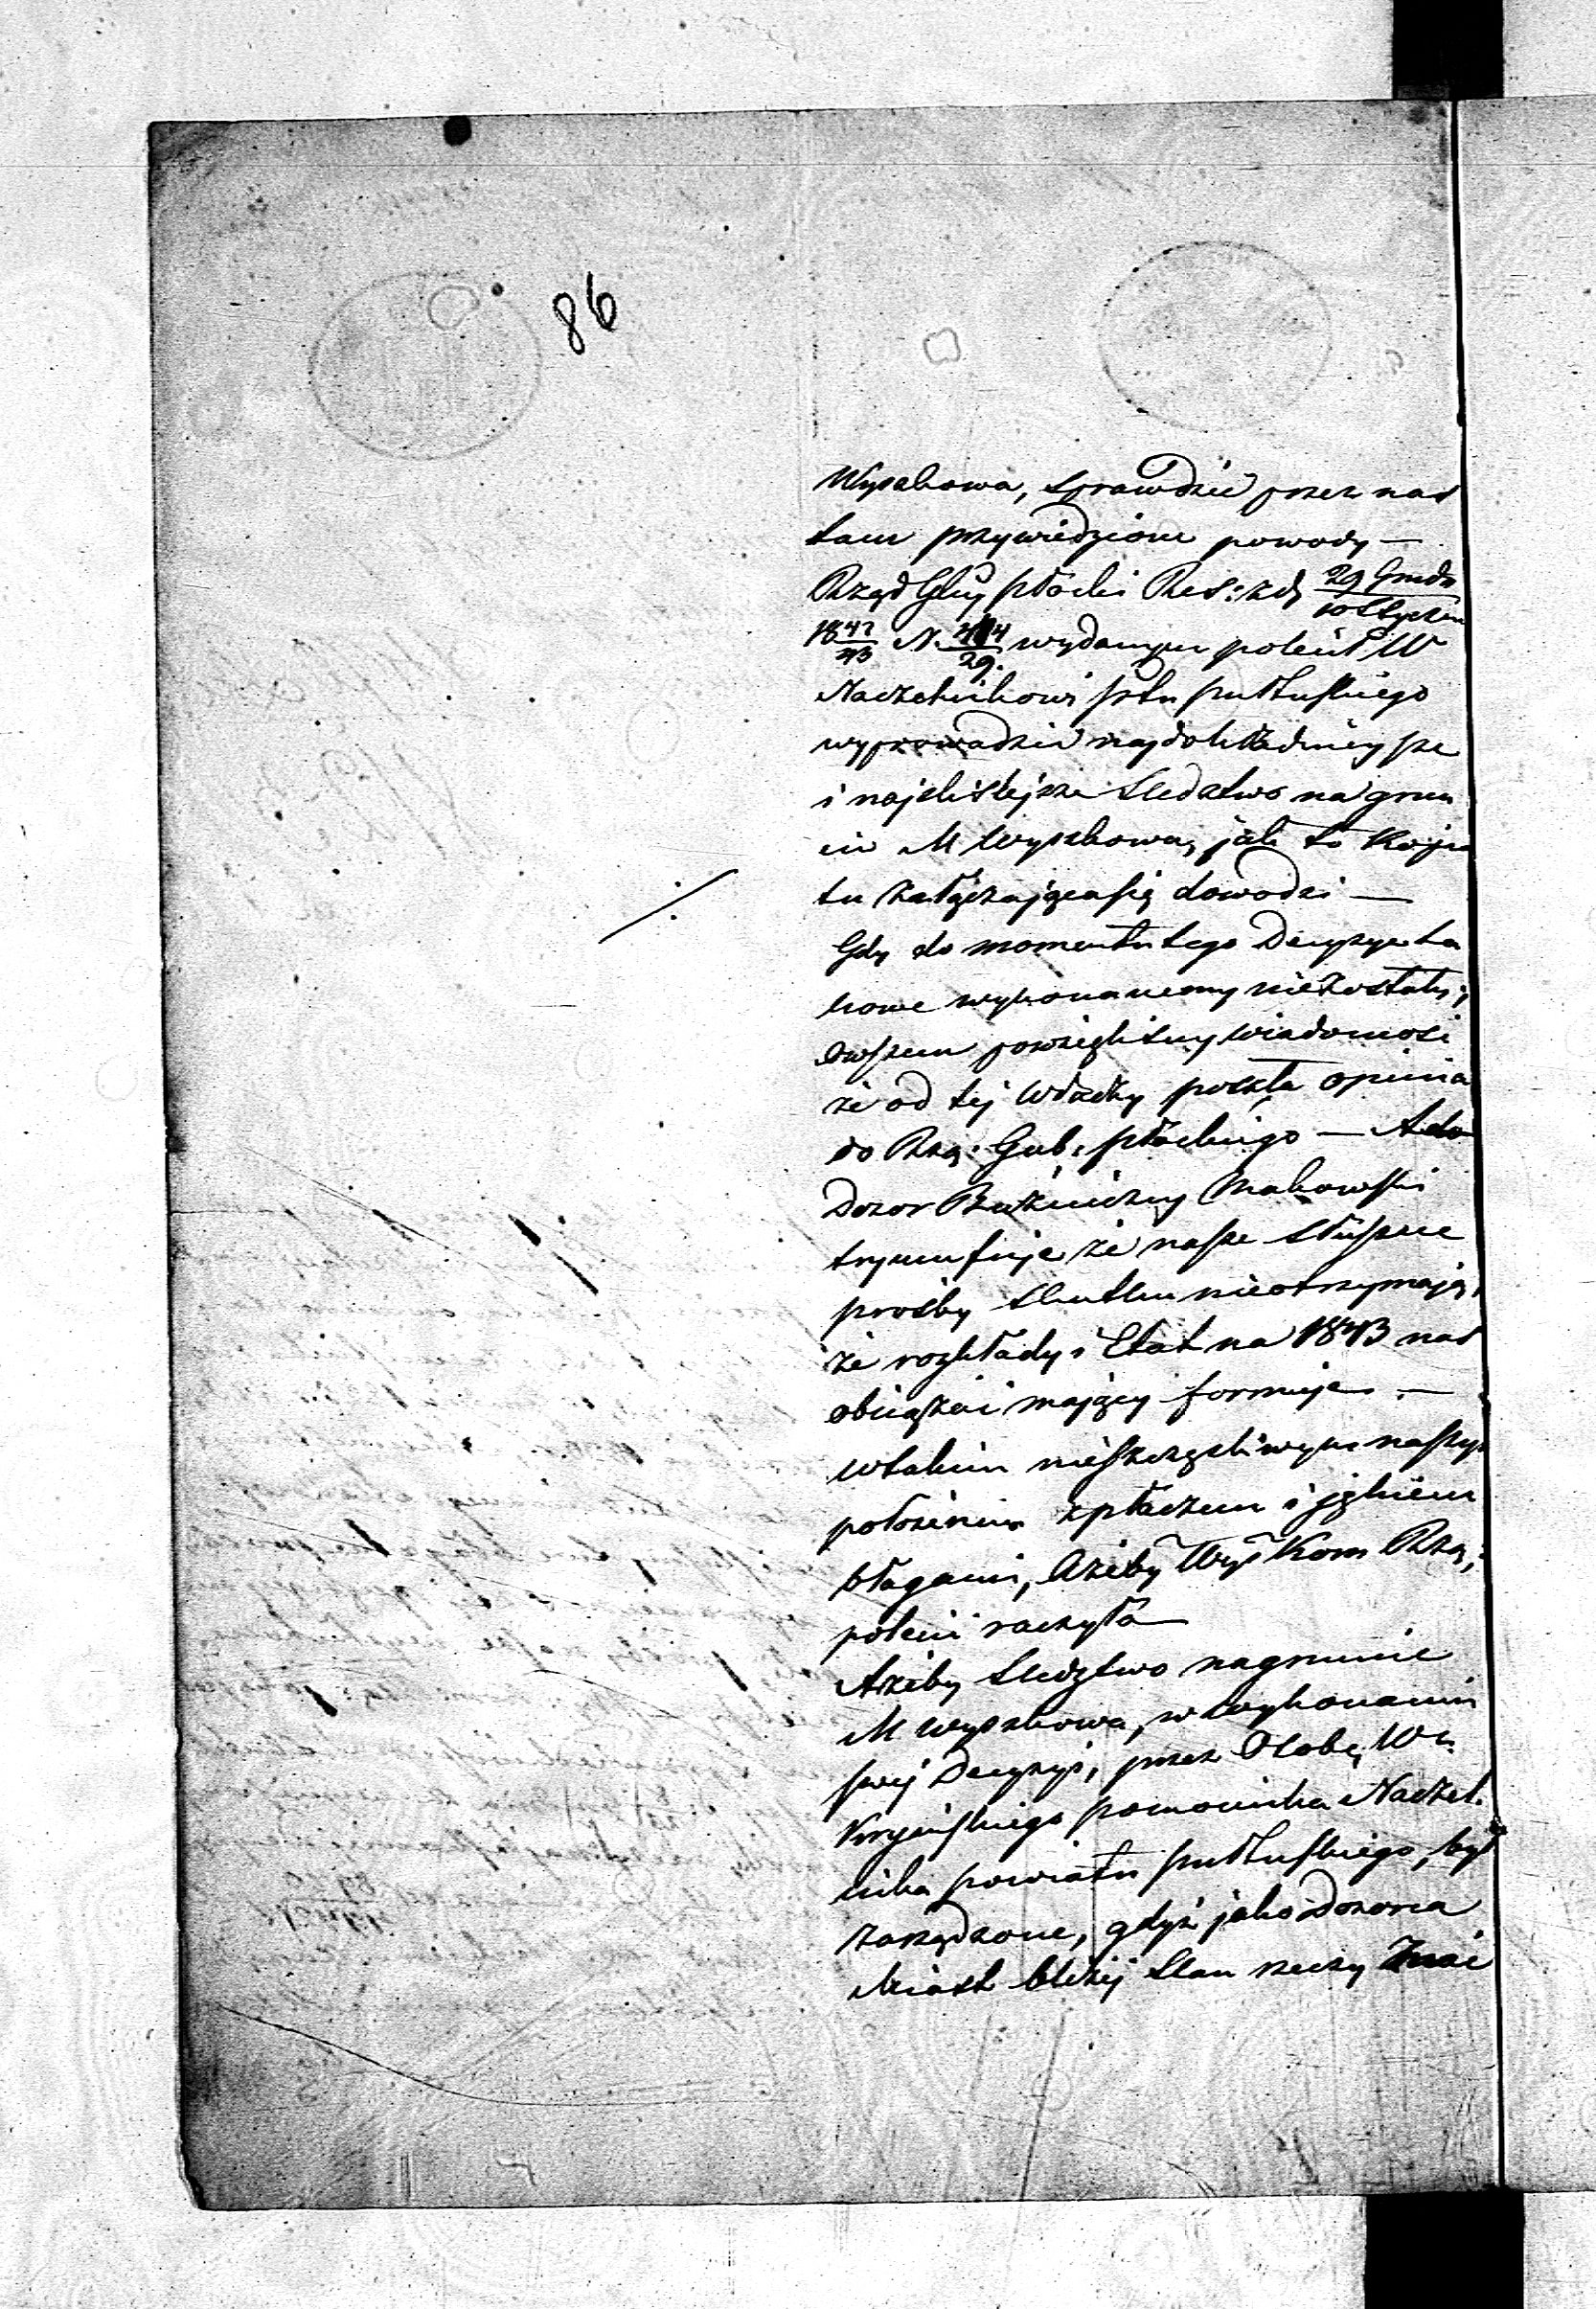 86
Wyszkowa, sprawdzić przez nas
tam przywiedzione powody —
Rząd Gby płocki Res: z d. 29 Grudn
10 Stycznia
1842/43 N. /29. wydanym polecił W
Naczelnikowi ptu pułtuskiego
wyprowadzić najdokładniejsze
i najściślejsze śledztwo na grun
cie M Wyszkowa, jak to Kopia
tu załączająca się dowodzi —
Gdy do momentu tego Decyzye ta
kowe wykonanemy niezostały,
owszem powzięliśmy wiadomość
że od tej władzy poszła opinia
do Rzą: Gub: płockiego — A do
Dozor Bużniczny Makowski
tryumfuje że nasze słuszne
prośby skutku nieotrzymają,
że rozkłady i Etat na 1843 nas
obciążać mający formuje. —
W takim nieszczęśliwym naszym
położeniu z płaczem i jękiem
błagami, Ażeby Wys Kom Rzą:
polecić raczyła —
Ażeby śledztwo nagruncie
M Wyszkowa, w wykonaniu
swej Decyzyi, przez Osobę W
Kryńskiego pomocnika Naczel.
nika powiatu pułtuskiego, był
zarządzone, gdyż jako Dozorca
Miast bliżej stan rzeczy Znać